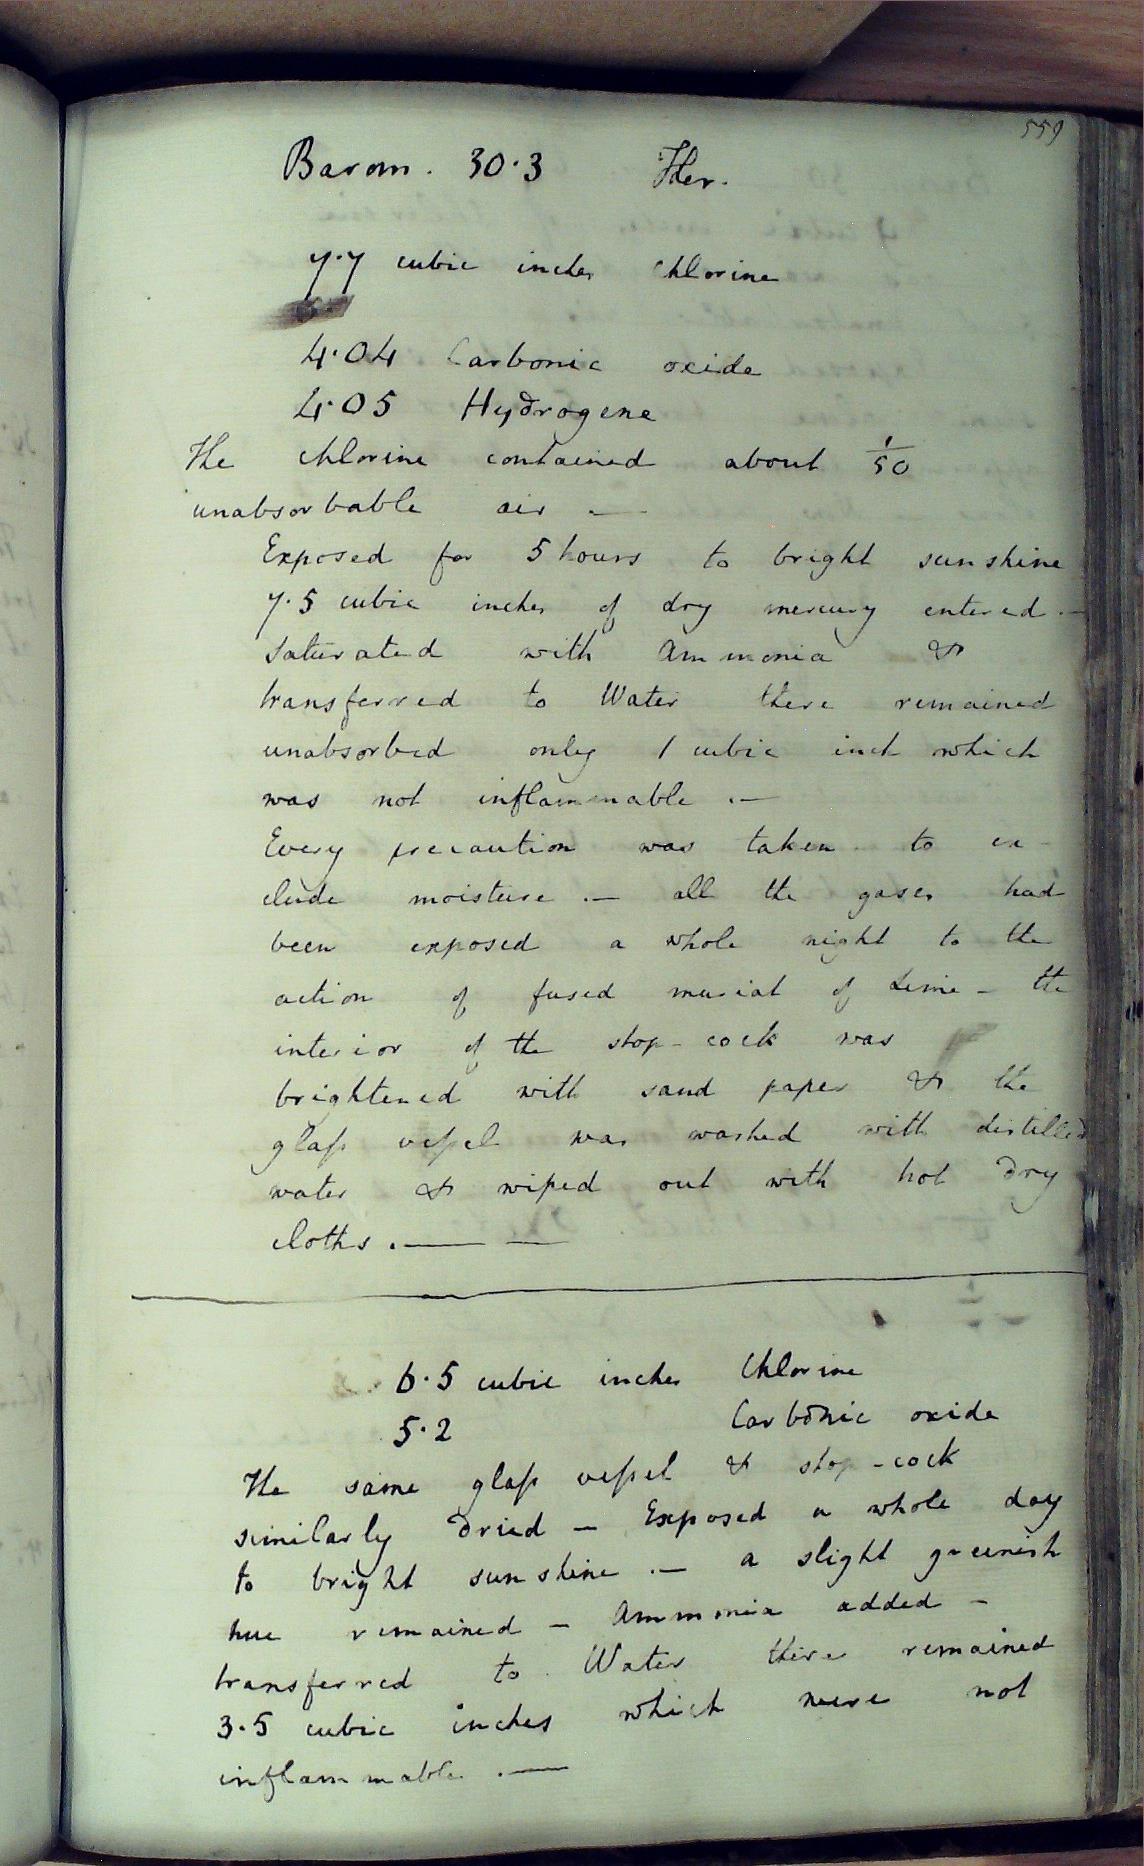 559
Barom. 30.3 Ther.
7.7 cubic inches Chlorine
4.04 Carbonic oxide
4.05 Hydrogene
The chlorine contained about 1/50
unabsorbable air .—
Exposed for 5 hours to bright sunshine
7.5 cubic inches of dry mercury entered .—
saturated with Ammonia &
transferred to Water there remained
unabsorbed only 1 cubic inch which
was not inflammable .—
Every precaution was taken to ex-
clude moisture .— all the gases had
been exposed a whole night to the
action of fused muriat of Lime – the
interior of the stop-cock was
brightened with sand paper & the
glass vessel was washed with distilled
water & wiped out with hot dry
cloths .— —
6.5 cubic inches Chlorine
5.2 Carbonic oxide
The same glass vessel & stop-cock
similarly dried – Exposed a whole day
to bright sunshine .— a slight greenish
hue remained – Ammonia added –
transferred to Water there remained
3.5 cubic inches which were not
inflammable .—